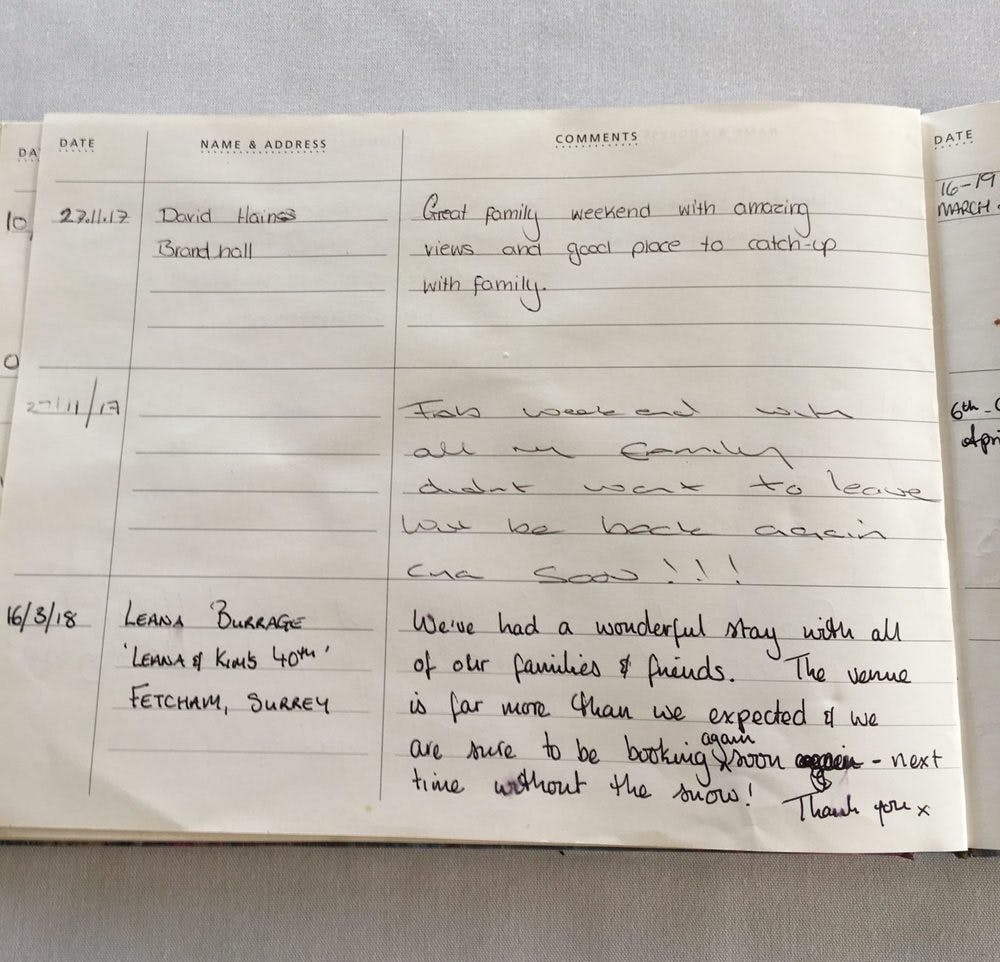 DATE NAME & ADDRESS COMMENTS DATE
27.11.17 David Haines Great family weekend with amazing
Brandhall views and good place to catch-up
with family.
27/11/17 Fab weekend with
all my family
didnt want to leave
will be back again
Soon!!!
16/3/18 LEANA BURRAGE We've had a wonderful stay with all
'LEANA & KIM'S 40TH' of our families & friends. The venue
FETCHAM, SURREY is far more than we expected & we
are sure to be booking again soon - next
time without the snow!
Thank you x
16-19
MARCH
6th -